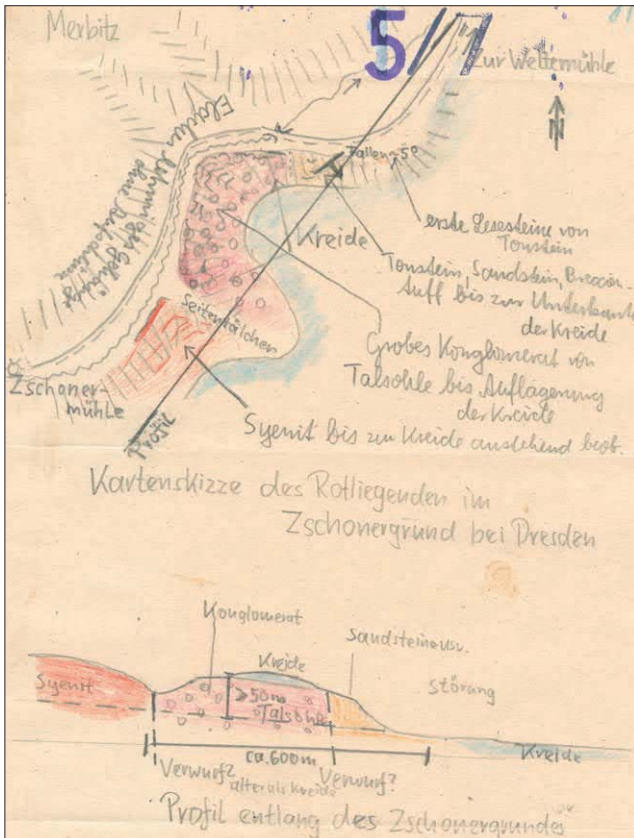 Merbitz
5/7
Zur Weltemühle
N
Flacher lehmiger Gehänge
ohne Aufschlüsse
Fallen ~50
erste Lesesteine von
Tonstein
Kreide
Tonstein, Sandstein, Breccien-
Tuff bis zur Unterkante
der Kreide
Seitentälchen
Grobes Konglomerat von
Talsohle bis Auflagerung
der Kreide
Zschoner-
mühle
Profil
Syenit bis zur Kreide anstehend beob.
Kartenskizze des Rotliegenden im
Zschonergrund bei Dresden
Konglomerat
Sandstein usw.
Kreide
Störung
Syenit
>50m
Talsohle
Kreide
ca. 600m
Verwurf?
älter als Kreide
Verwurf?
Profil entlang des Zschonergrundes